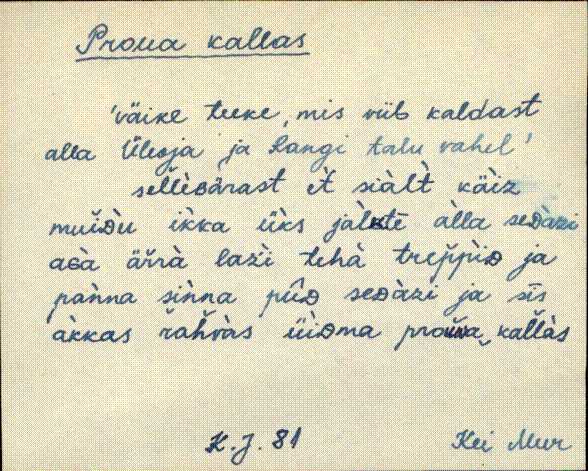 Proua kallas
'väike teeke, mis viib kaldast
alla Üleoja ja Langi talu vahel'
sel̆lèʙärast èt̀ siàl̀t̀ kä̀iz
muĭᴅù ik̀ka ük̀s jàl̀ktè àlla seᴅàzi
aɢà är̆rà laz̀i tehà trep̆pìᴅ ja
pan̆na siǹna pîᴅ seᴅàzi ja sīs
àkkas r̆ahvàs üìᴅma prouwa kal̆làs
K.J. 81
Kei Mur